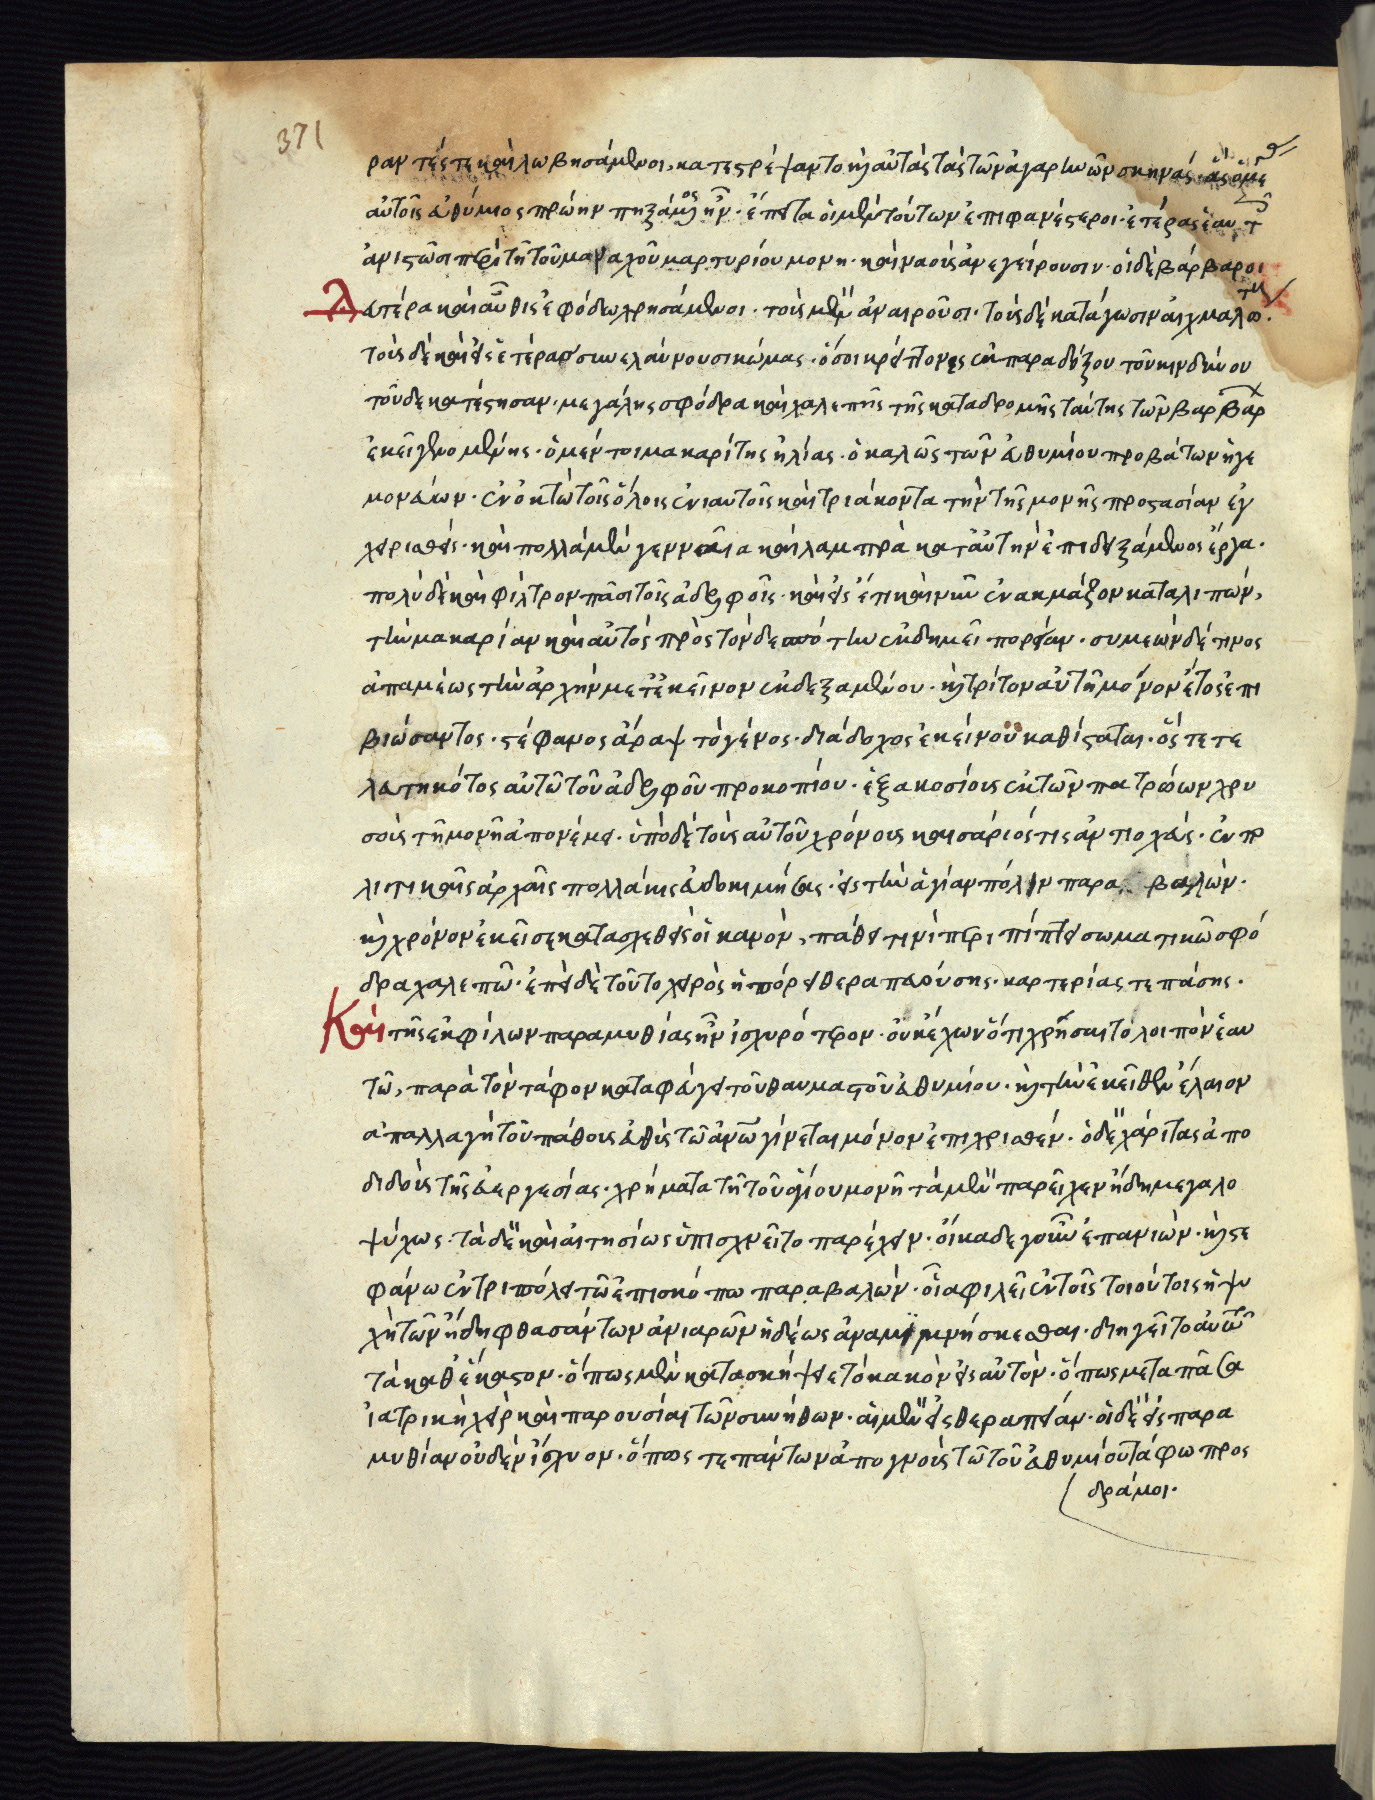 371
ραν τές τε καὶ λωβησάμενοι, κατεστρέψαντο καὶ αὐτὰς τὰς τῶν ἀγαρηνῶν σκηνάς·
αὐτοῖς εὐθύμιος πρώην πηξάμενος ἦν· ἔπειτα οἱ μὲν τούτων ἐπιφανέστεροι· ἑτέρας ἑαυτ
ἀνιστῶσι περὶ τῇ τοῦ μοναχοῦ μαρτυρίου μονῇ· καὶ ναοὺς ἀνεγείρουσιν· οἱ δὲ βάρβαροι
δευτέρα καὶ αὖθις ἐφόδω χρησάμενοι· τοὺς μὲν ἀναιροῦσι· τοὺς δὲ κατάγωσιν αἰχμαλώ
τοὺς δὲ καὶ εἰς ἑτέρας συνελαύνουσι κώμας· ὅσοι κρείττονες ἐκ παραδόξου τοῦ κινδύνου
τοῦδε κατέστησαν· μεγάλης σφόδρα καὶ χαλεπῆς τῆς καταδρομῆς ταύτης τῶν βαρβάρ
ἐκεῖ γενομένης· ὁ μέντοι μακαρίτης ἠλίας· ὁ καλῶς τῶν εὐθυμίου προβάτων ἡγε
μονεύων· ἐν ὀκτὼ τοῖς ὅλοις ἐνιαυτοῖς καὶ τριάκοντα τὴν τῆς μονῆς προστασίαν ἐγ
χειρισθείς· καὶ πολλὰ μὲν γενναῖα καὶ λαμπρὰ κατ' αὐτὴν ἐπιδειξάμενος ἔργα·
πολὺ δὲ καὶ φίλτρον πᾶσι τοῖς ἀδελφοῖς· καὶ εἰς ἔτι καὶ νῦν ἐνακμάζον καταλιπών,
τὴν μακαρίαν καὶ αὐτὸς πρὸς τὸν δεσπότην ἐκδημεῖ πορείαν· συμεὼν δέ τινος
ἀπαμέως τὴν ἀρχὴν μετ' ἐκεῖνον ἐκδεξαμένου· καὶ τρίτον αὐτῇ μόνον ἔτος ἐπι
βιώσαντος· στέφανος ἄραψ τὸ γένος· διάδοχος ἐκείνου καθίσταται· ὅς τε τε
λευτηκότος αὐτῶ τοῦ ἀδελφοῦ προκοπίου· ἑξακοσίους ἐκ τῶν πατρώων χρυ
σοὺς τῇ μονῇ ἀπονέμει· ὑπὸ δὲ τοὺς αὐτοῦ χρόνους καισάριός τις ἀντιοχεύς· ἐν πο
λιτικαῖς ἀρχαῖς πολλάκις εὐδοκιμήσας· εἰς τὴν ἁγίαν πόλιν παραβαλών·
καὶ χρόνον ἐκεῖσε κατασχεθεὶς οἱ κανὸν, πάθει τινὶ περιπίπτει σωματικῶ σφό
δρα χαλεπῶ· ἐπεὶ δὲ τοῦτο χειρὸς ἠπόρει θεραπευούσης· καρτερίας τε πάσης·
Καὶ τῆς ἐκ φίλων παραμυθίας ἦν ἰσχυρότερον· οὐκ ἔχων ὅτι χρήσαιτο λοιπὸν ἑαυ
τῶ, παρὰ τὸν τάφον καταφεύγει τοῦ θαυμαστοῦ εὐθυμίου· καὶ τὴν ἐκεῖθεν ἔλαιον
ἀπαλλαγὴ τοῦ πάθους εὐθὺς τῶ ἀνῶ γίνεται μόνον ἐπιχρισθέν· ὁ δὲ χάριτας ἀπο
διδοὺς τῆς εὐεργεσίας· χρήματα τῇ τοῦ ἁγίου μονῇ τὰ μὲν παρεῖχεν ἤδη μεγαλο
ψύχως· τὰ δὲ καὶ αἰτησίως ὑπισχνεῖτο παρέχειν· οἴκαδε γοῦν ἐπανιών· καὶ στε
φάνω ἐν τριπόλει τῶ ἐπισκόπω παραβαλών· οἷα φιλεῖ ἐν τοῖς τοιούτοις ἡ ψυ
χὴ τῶν ἤδη φθασάντων ἀνιαρῶν ἡδέως ἀναμιμνήσκεσθαι· διηγεῖτο αὐτῶ
τὰ καθ' ἕκαστον· ὅπως μὲν κατασκήψειε τὸ κακὸν εἰς αὐτόν· ὅπως μετὰ πᾶσα
ἰατρικὴ χεὶρ καὶ παρουσίαι τῶν συνήθων· αἱ μὲν εἰς θεραπείαν· οἱ δὲ εἰς παρα
μυθίαν οὐδὲν ἴσχυον· ὅπως τε πάντων ἀπογνοὺς τῶ τοῦ εὐθυμίου τάφω προς
δράμοι·